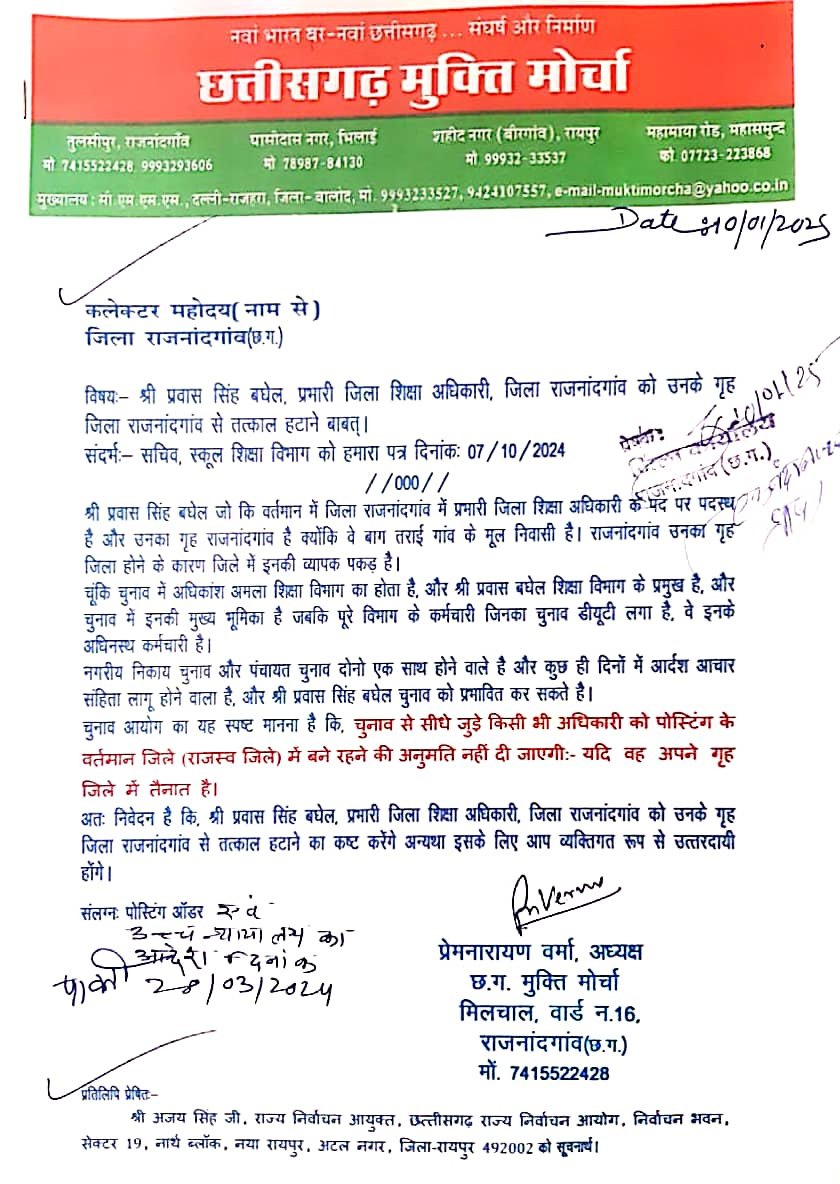 नवां भारत बर-नवां छत्तीसगढ़ ... संघर्ष और निर्माण
छत्तीसगढ़ मुक्ति मोर्चा
तुलसीपुर, राजनांदगाँव
मो 7415522428, 9993293606
घासीदास नगर, भिलाई
मो 78987-84130
शहीद नगर (बीरगांव), रायपुर
मो. 99932-33537
महामाया रोड, महासमुन्द
को. 07723-223868
मुख्यालय : सी.एम.एस.एस., दल्ली-राजहरा, जिला- बालोद, मो. 9993233527, 9424107557, e-mail-muktimorcha@yahoo.co.in
Date 10/01/2025
कलेक्टर महोदय( नाम से )
जिला राजनांदगांव(छ.ग.)
विषयः- श्री प्रवास सिंह बघेल, प्रभारी जिला शिक्षा अधिकारी, जिला राजनांदगांव को उनके गृह
जिला राजनांदगांव से तत्काल हटाने बाबत्।
संदर्भः- सचिव, स्कूल शिक्षा विभाग को हमारा पत्र दिनांकः 07/10/2024
//000//
10/01/25
कार्यालय
(छ.ग.)
श्री प्रवास सिंह बघेल जो कि वर्तमान में जिला राजनांदगांव में प्रभारी जिला शिक्षा अधिकारी के पद पर पदस्थ
है और उनका गृह राजनांदगांव है क्योंकि वे बाग तराई गांव के मूल निवासी है। राजनांदगांव उनका गृह
जिला होने के कारण जिले में इनकी व्यापक पकड़ है।
चूंकि चुनाव में अधिकांश अमला शिक्षा विभाग का होता है, और श्री प्रवास बघेल शिक्षा विभाग के प्रमुख है, और
चुनाव में इनकी मुख्य भूमिका है जबकि पूरे विभाग के कर्मचारी जिनका चुनाव डीयूटी लगा है, वे इनके
अधिनस्थ कर्मचारी है।
नगरीय निकाय चुनाव और पंचायत चुनाव दोनो एक साथ होने वाले है और कुछ ही दिनों में आर्दश आचार
संहिता लागू होने वाला है, और श्री प्रवास सिंह बघेल चुनाव को प्रभावित कर सकते है।
चुनाव आयोग का यह स्पष्ट मानना है कि, चुनाव से सीधे जुड़े किसी भी अधिकारी को पोस्टिंग के
वर्तमान जिले (राजस्व जिले) में बने रहने की अनुमति नहीं दी जाएगीः- यदि वह अपने गृह
जिले में तैनात है।
अतः निवेदन है कि, श्री प्रवास सिंह बघेल, प्रभारी जिला शिक्षा अधिकारी, जिला राजनांदगांव को उनके गृह
जिला राजनांदगांव से तत्काल हटाने का कष्ट करेंगे अन्यथा इसके लिए आप व्यक्तिगत रूप से उत्तरदायी
होंगे।
संलग्नः पोस्टिंग ऑडर एवं
उच्च न्यायालय का
आदेश दिनांक
28/03/2024
PNVerma
प्रेमनारायण वर्मा, अध्यक्ष
छ.ग. मुक्ति मोर्चा
मिलचाल, वार्ड न.16,
राजनांदगांव(छ.ग.)
मों. 7415522428
प्रतिलिपि प्रेषितः-
श्री अजय सिंह जी, राज्य निर्वाचन आयुक्त, छत्तीसगढ़ राज्य निर्वाचन आयोग, निर्वाचन भवन,
सेक्टर 19, नार्थ ब्लॉक, नया रायपुर, अटल नगर, जिला-रायपुर 492002 को सूचनार्थ।